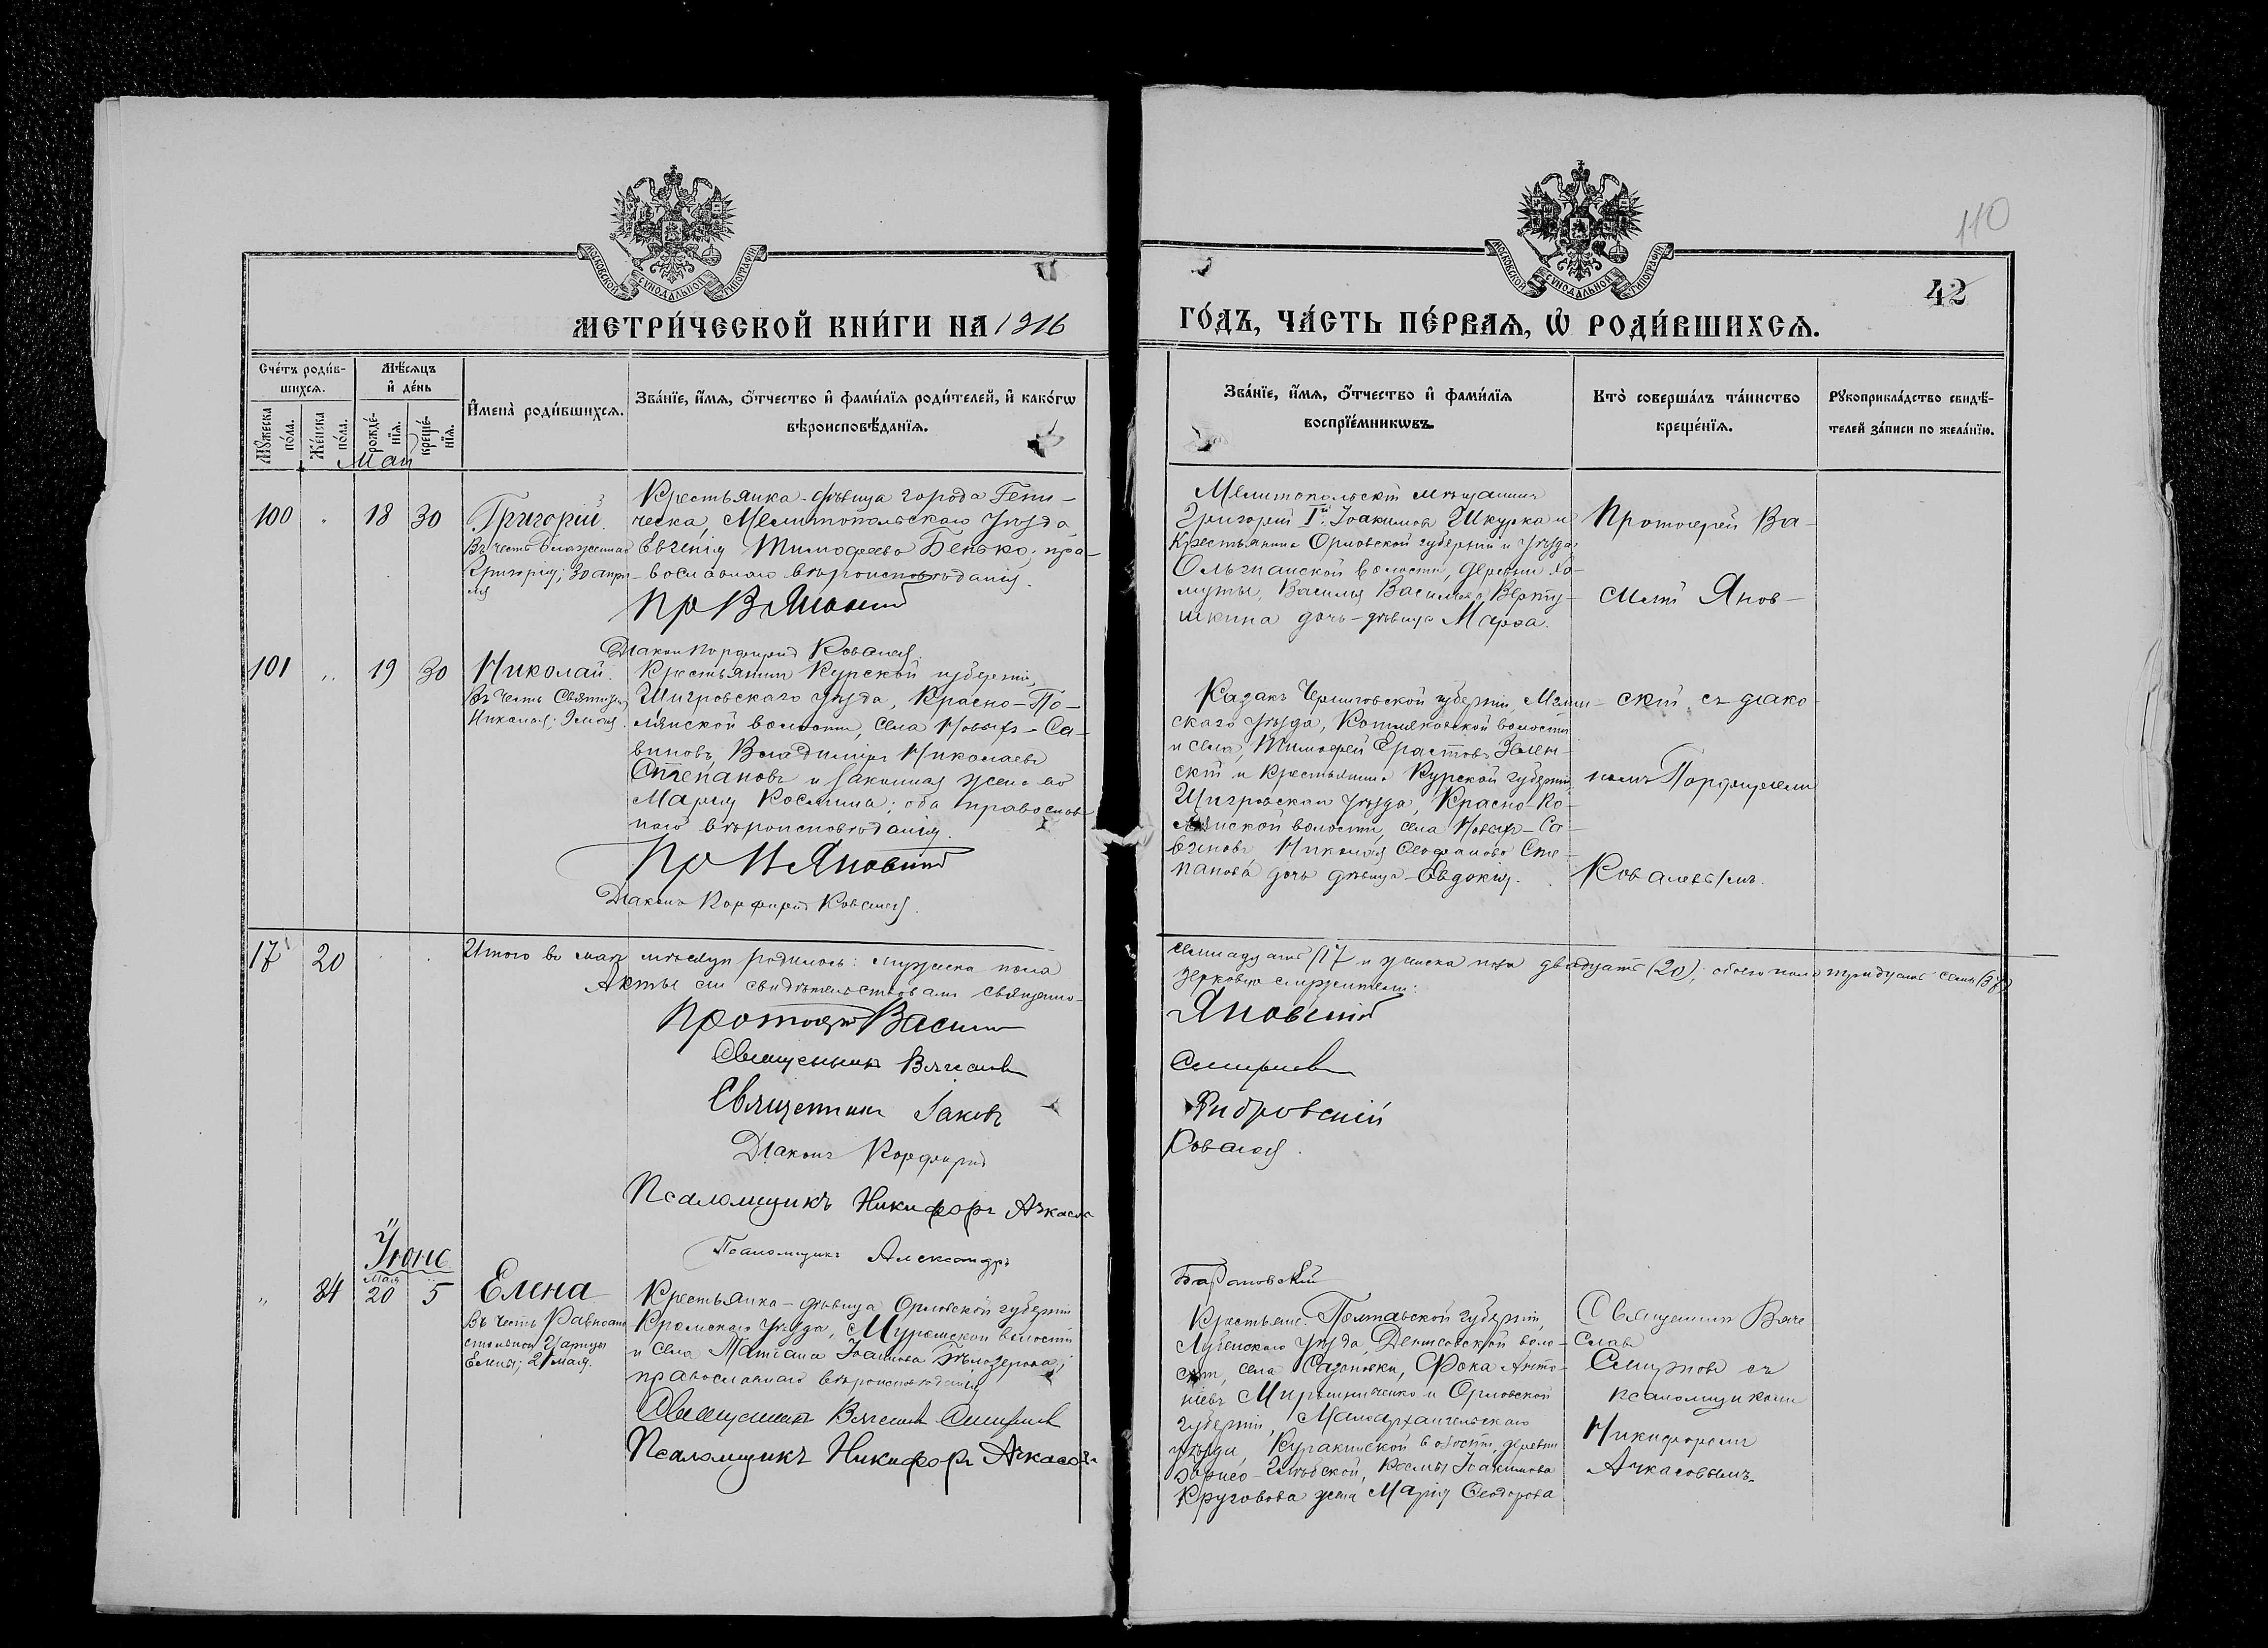 МОСКОВСКОЙ СѴНОДАЛЬНОЙ ТИПОГРАФІИ
МЕТРИ́ЧЕСКОЙ КНИ́ГИ НА 1916
Сче́тъ роди́в-
шихсѧ.
Мꙋ́жеска
по́ла.
Же́нска
по́ла.
Мѣ́сѧцъ
и҆ де́нь
рожде́-
нїѧ.
креще́-
нїѧ.
И҆мена̀ роди́вшихсѧ.
Зва́нїе, и҆́мѧ, ѻ҆́тчество и҆ фами́лїѧ роди́телей, и҆ како́гѡ
вѣроисповѣ́данїѧ.
Май
100 " 18 30
Григорій.
Въ честь блаженнаго
Григорія; 30 апрѣ-
ля
Крестьянка-дѣвица города Гени-
ческа, Мелитопольскаго уѣзда
Евгенія Тимофеева Бенько, пра-
вославнаго вѣроисповѣданія.
Пр В Яновскій
Діаконъ Порфирій Ковалев
101 " 19 30
Николай.
Въ честь Святителя
Николая; 9 мая.
Крестьянинъ Курской губерніи,
Щигровскаго уѣзда, Красно-По-
лянской волости, села Новыхъ-Са-
виновъ, Владиміръ Николаевъ
Степановъ и законная жена его
Марія Космина; оба православ-
наго вѣроисповѣданія.
Пр В Яновскій
Діаконъ Порфирій Ковалев
17 20
Итого въ маѣ мѣсяцѣ родилось: мужеска пола
Акты сіи свидѣтельствовали священно-
Протоіерей Василій
Священникъ Вячеславъ
Священникъ Іаковъ
Діаконъ Порфирій
Псаломщикъ Никифоръ Ачкасовъ
Псаломщикъ Александръ
Іюнь
" 84 Мая 20 5
Елена
Въ честь Равноапо
стольной Царицы
Елены; 21 мая.
Крестьянка-дѣвица Орловской губерніи
Кромскаго уѣзда, волости
и села Татіана Іоаннова Бѣлозерова;
православнаго вѣроисповѣданія
Священникъ Вячеславъ Смирновъ
Псаломщикъ Никифоръ Ачкасовъ
110
42
МОСКОВСКОЙ СѴНОДАЛЬНОЙ ТИПОГРАФІИ
ГО́ДЪ, ЧА́СТЬ ПЕ́РВАѦ, Ѡ҆ РОДИ́ВШИХСѦ.
Зва́нїе, и҆́мѧ, ѻ҆́тчество и҆ фами́лїѧ
воспрїе́мникѡвъ.
Кто̀ соверша́лъ та́инство
креще́нїѧ.
Рꙋкоприкла́дство свидѣ́-
телей за́писи по жела́нїю.
Мелитопольскій мѣщанинъ
Григорій Іоакимовъ Шкурка и
Крестьянина Орловской губерніи и уѣзда,
волости, деревни Хо-
муты, Василія Васильева Верту-
шкина дочь-дѣвица Марѳа.
Протоіерей Ва-
силій Янов-
Казакъ Черниговской губерніи, Мглин-
скаго уѣзда, волости
и села, Тимофей Ерастовъ Зелен-
скій и Крестьянина Курской губерніи,
Щигровскаго уѣзда, Красно-По-
лянской волости, села Новыхъ-Са-
виновъ Николая Ѳеофанова Сте-
панова дочь дѣвица-Евдокія.
скій съ діако-
номъ Порфиріемъ
Ковалевымъ.
семнадцать (17) и женска пола двадцать (20); обоего пола тридцать семь (37)
церковно служители:
Яновскій
Смирновъ
Ковалев
Барановскій
Крестьян. Полтавской губерніи,
Лубенскаго уѣзда, воло-
сти, села Сазоновки, Фока Анто-
ніевъ Мирошниченко и Орловской
губерніи, Малоархангельскаго
уѣзда, Куракинской волости, деревни
Космы Іоакимова
Круговова жена Марія Ѳеодорова
Священникъ Вяче
славъ
Смирновъ съ
псаломщикомъ
Никифоромъ
Ачкасовымъ.